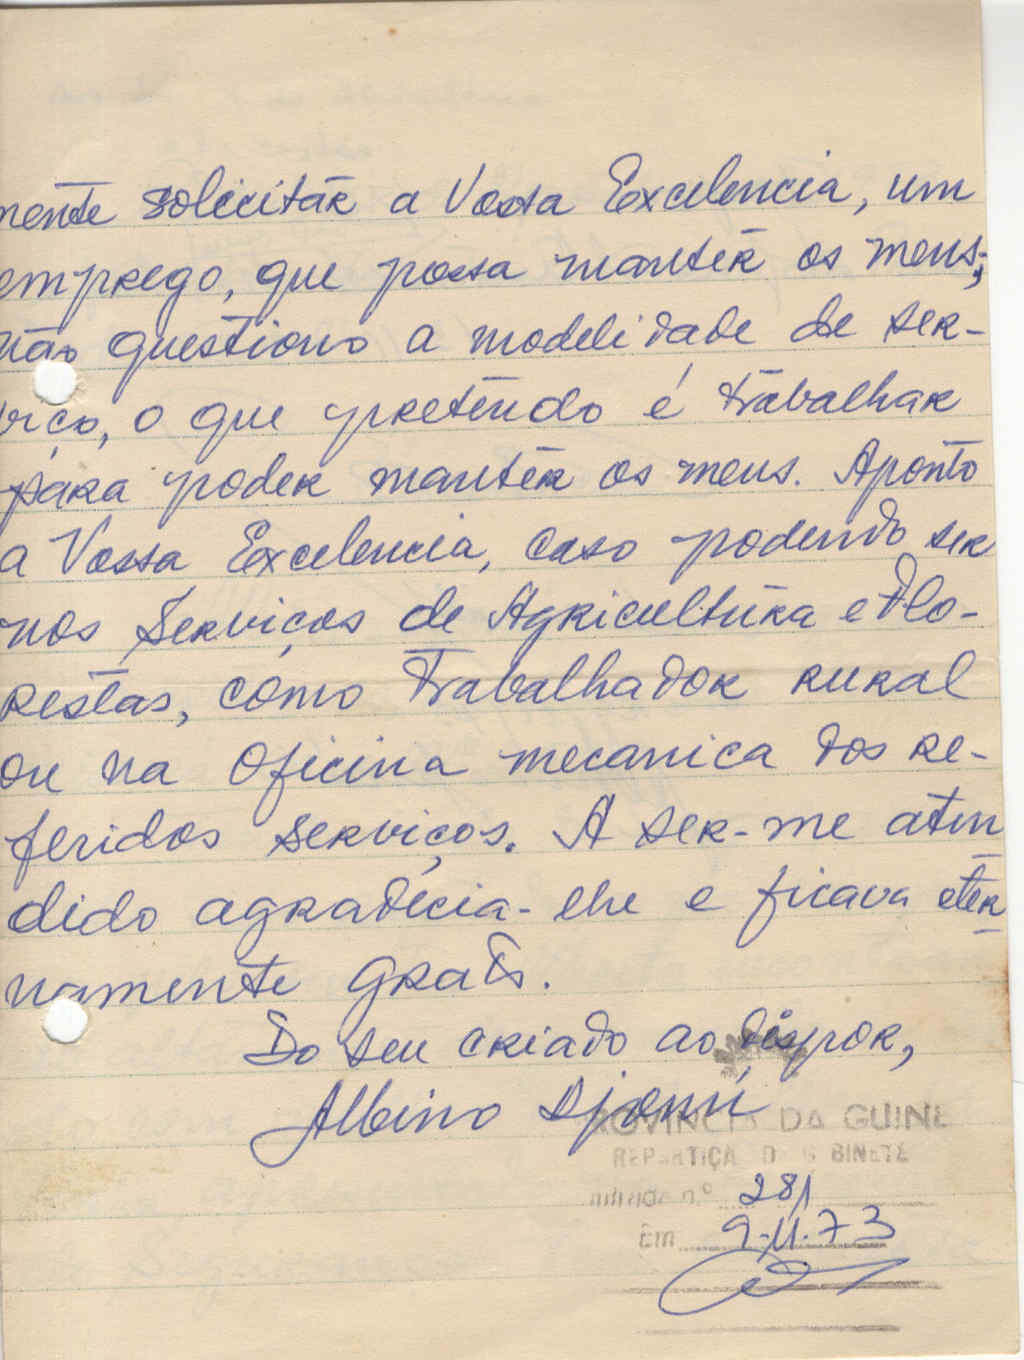 mente solicitar a Vossa Excelencia, um
emprego, que possa mantêr os meus;
não questiono a modelidade de ser-
viço, o que pretendo é trabalhar
para poder mantêr os meus. Aponto
a Vossa Excelencia, caso podendo ser
nos Serviços de Agricultura e Flo-
restas, como trabalhador rural
ou na Oficina mecanica dos re-
feridos serviços. A ser-me aten
dido agradecia-lhe e ficava eter
namente grato.
Do seu criado ao dispor,
Albino Djonú
PROVINCIA DA GUINE
REPARTIÇA D G BINETE
n.º 281
Em 9.11.73